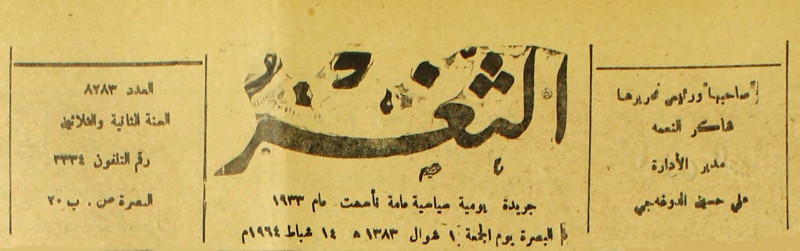 صاحبها ورئيس تحريرها
شاكر النعمه
مدير الأدارة
علي حسين الدوغجي
الثغر
جريدة يومية سياسية عامة تأسست عام ١٩٣٣
البصرة يوم الجمعة ١ شوال ١٣٨٣ ه ١٤ شباط ١٩٦٤م
العدد ٨٢٨٣
السنة الثانية والثلاثين
رقم التلفون ٣٣٣٤
البصرة ص . ب ٢٠